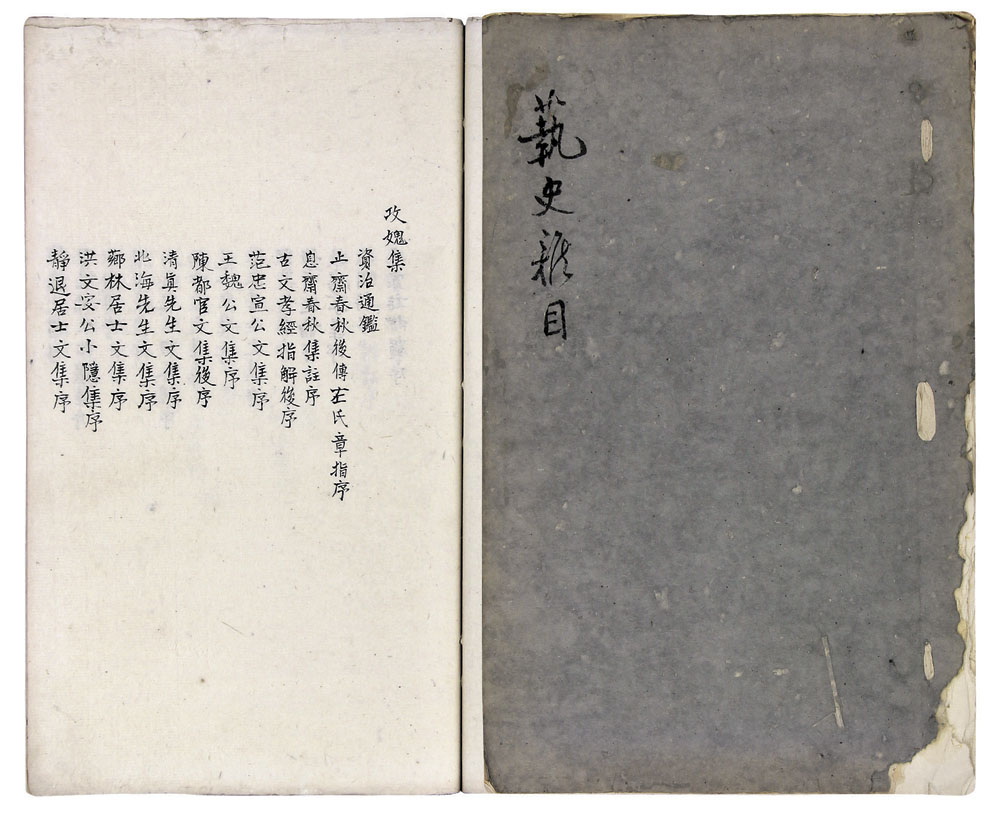 蓺史雜目
攻媿集
資治通鑑
止齋春秋後傳左氏章指序
息齋春秋集註序
古文孝經指解後序
范忠宣公文集序
王魏公文集序
陳都官文集後序
清眞先生文集序
北海先生文集序
薌林居士文集序
洪文安公小隱集序
靜退居士文集序